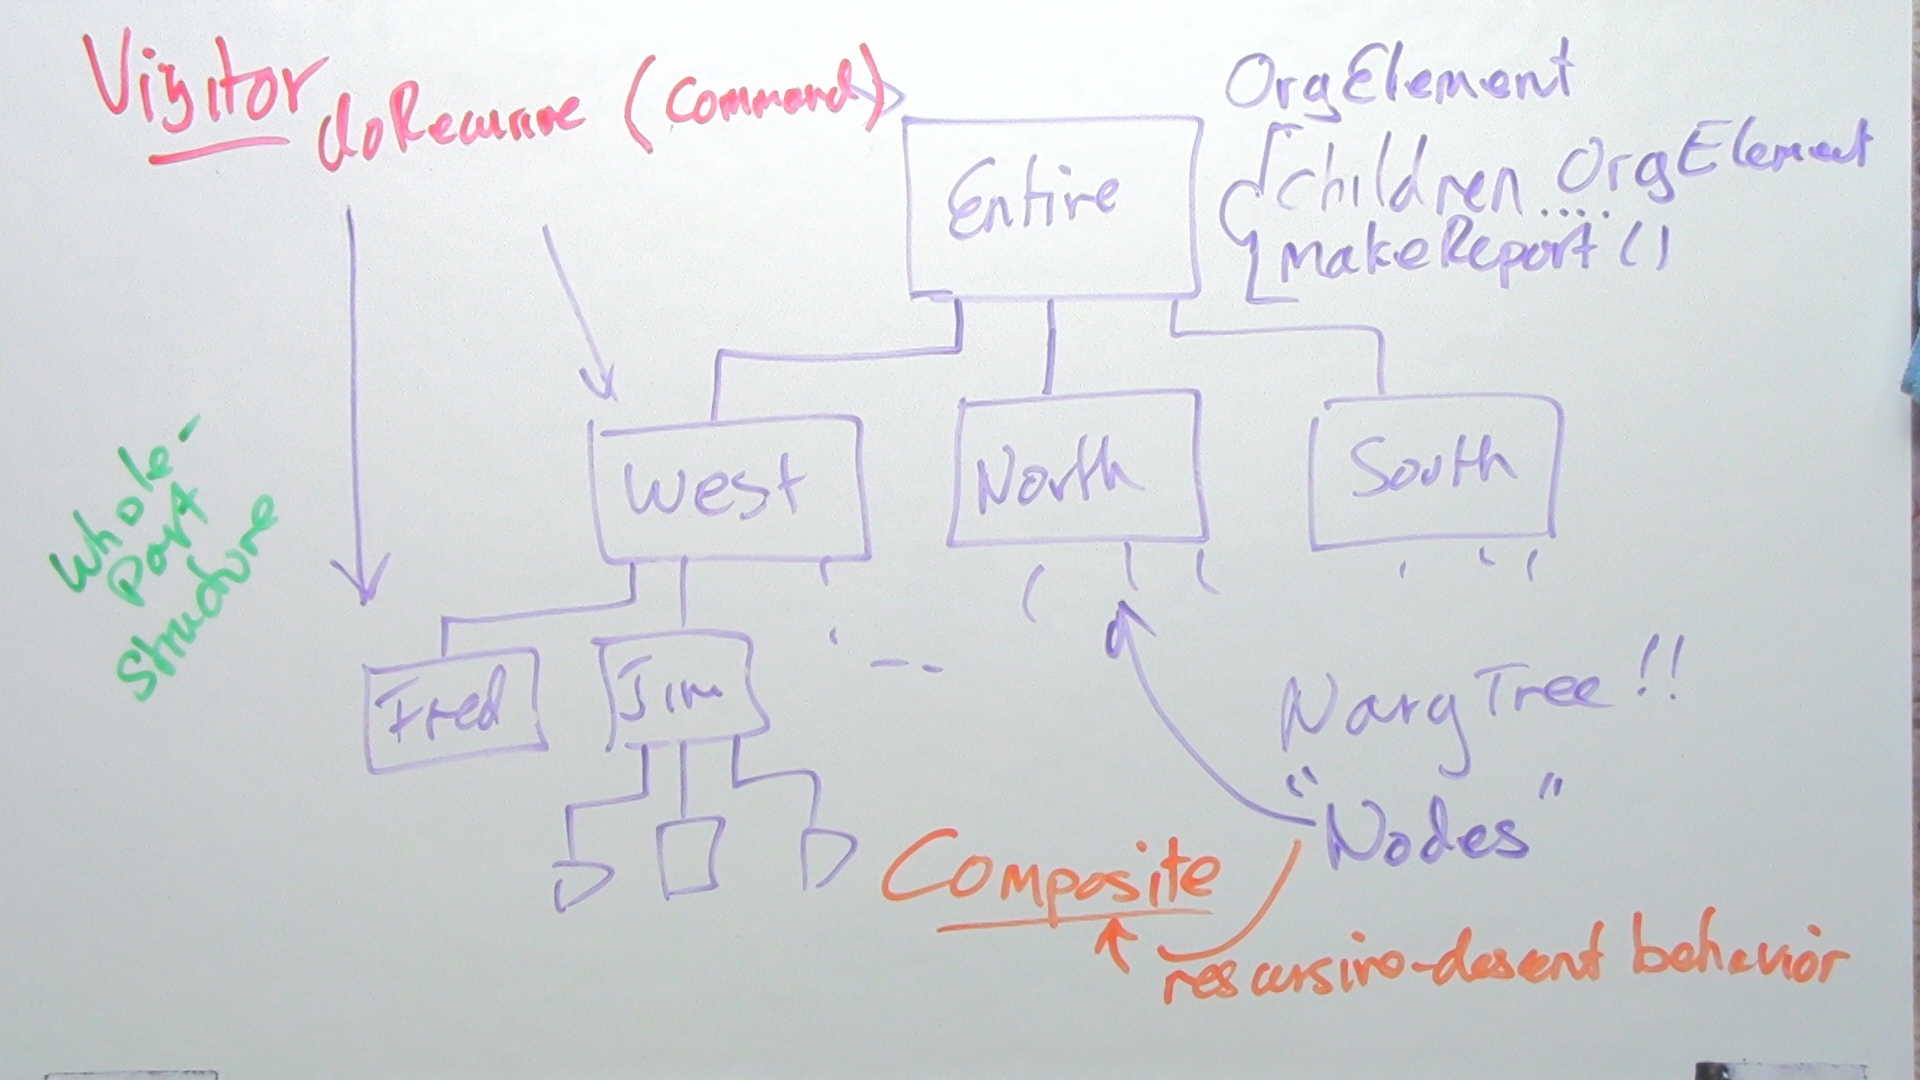 Visitor
doRecursive (Command)
OrgElement
children OrgElement
....
makeReport ()
Entire
West
North
South
Whole-
Part
Structure
Fred
Jim
Nary Tree !!
"Nodes"
Composite
rescursive-descent behavior